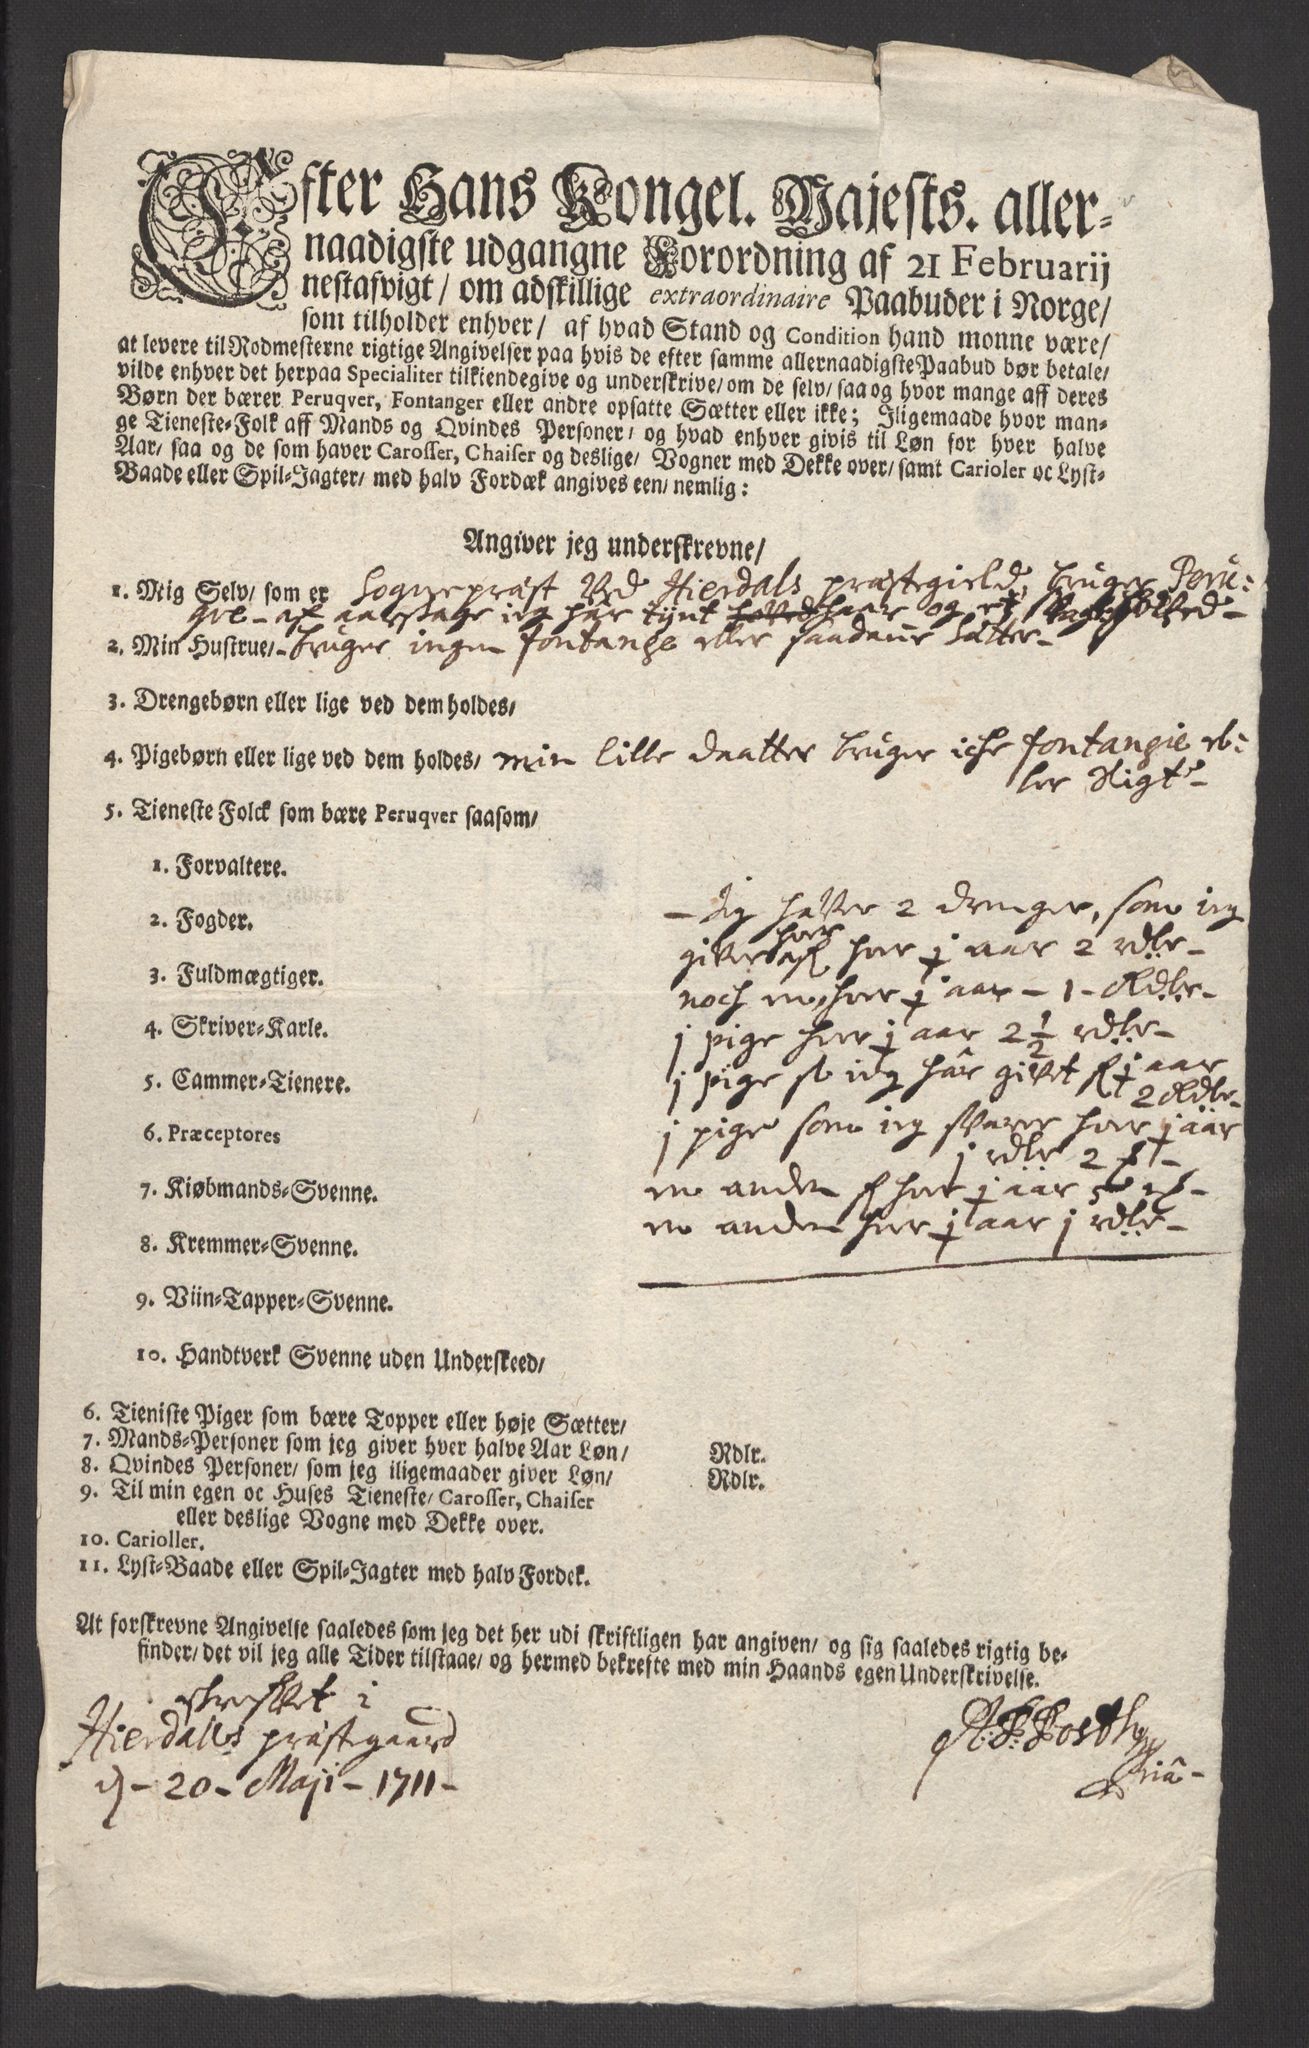 Efter Hans Kongel. Majests. aller-
naadigste udgangne Forordning af 21 Februarij
nestafvigt/ om adskillige extraordinaire Paabuder i Norge/
som tilholder enhver/ af hvad Stand og Condition hand monne være/
at levere til Rodmesterne rigtige Angivelser paa hvis de efter samme allernaadigste Paabud bør betale/
vilde enhver det herpaa Specialiter tilkiendegive og underskrive/ om de selv/ saa og hvor mange aff deres
Børn der bærer Peruqver, Fontanger eller andre opsatte Sætter eller ikke; Iligemaade hvor man-
ge Tieneste-Folk aff Mands og Qvindes Personer/ og hvad enhver givis til Løn for hver halve
Aar/ saa og de som haver Carosser, Chaiser og deslige/ Vogner med Dekke over/ samt Carioler oc Lyst-
Baade eller Spil-Jagter/ med halv Fordæk angives een/ nemlig:
Angiver jeg underskrevne/
1. Mig Selv/ som er Sognepræst Ved Hierdals præstegield, bruger Peru-
qve - af aarsage ieg har tynt haar og et
2. Min Hustrue/ - bruger ingen fontange eller saadanne Sætter -
3. Drengebørn eller lige ved dem holdes/
4. Pigebørn eller lige ved dem holdes/ min lille daatter bruger iche fontangie el-
ler Sligt -
5. Tieneste Folck som bære Peruqver saasom/
1. Forvaltere.
2. Fogder.
- Jeg haver 2 drenger, som ieg
3. Fuldmægtiger.
giver hver halv aar 2 rdlr -
noch en, hver ½ aar - 1 - Rdlr -
4. Skriver-Karle.
j pige hver ½ aar 2½ rdlr -
5. Cammer-Tienere.
j pige so ieg har givet ½ aar
2 Rdlr -
6. Præceptores
j pige som ieg svarer hver ½ aar
j rdlr 2
7. Kiøbmands-Svenne.
en anden hver ½ aar
8. Kremmer-Svenne.
en anden hver ½ aar j rdlr -
9. Viin-Tapper-Svenne.
10. Handtverk Svenne uden Underskeed/
6. Tieniste Piger som bære Topper eller høje Sætter/
7. Mands-Personer som jeg giver hver halve Aar Løn/ Rdlr.
8. Qvindes Personer/ som jeg iligemaader giver Løn/ Rdlr.
9. Til min egen oc Huses Tieneste/ Carosser, Chaiser
eller deslige Vogne med Dekke over.
10. Carioller.
11. Lyst-Baade eller Spil-Jagter med halv Fordek.
At forskrevne Angivelse saaledes som jeg det her udi skriftligen har angiven/ og sig saaledes rigtig be-
finder/ det vil jeg alle Tider tilstaae/ og hermed bekrefte med min Haands egen Underskrivelse.
skrefvet i
Hierdalls præstgaard
d - 20 - Maji - 1711 -